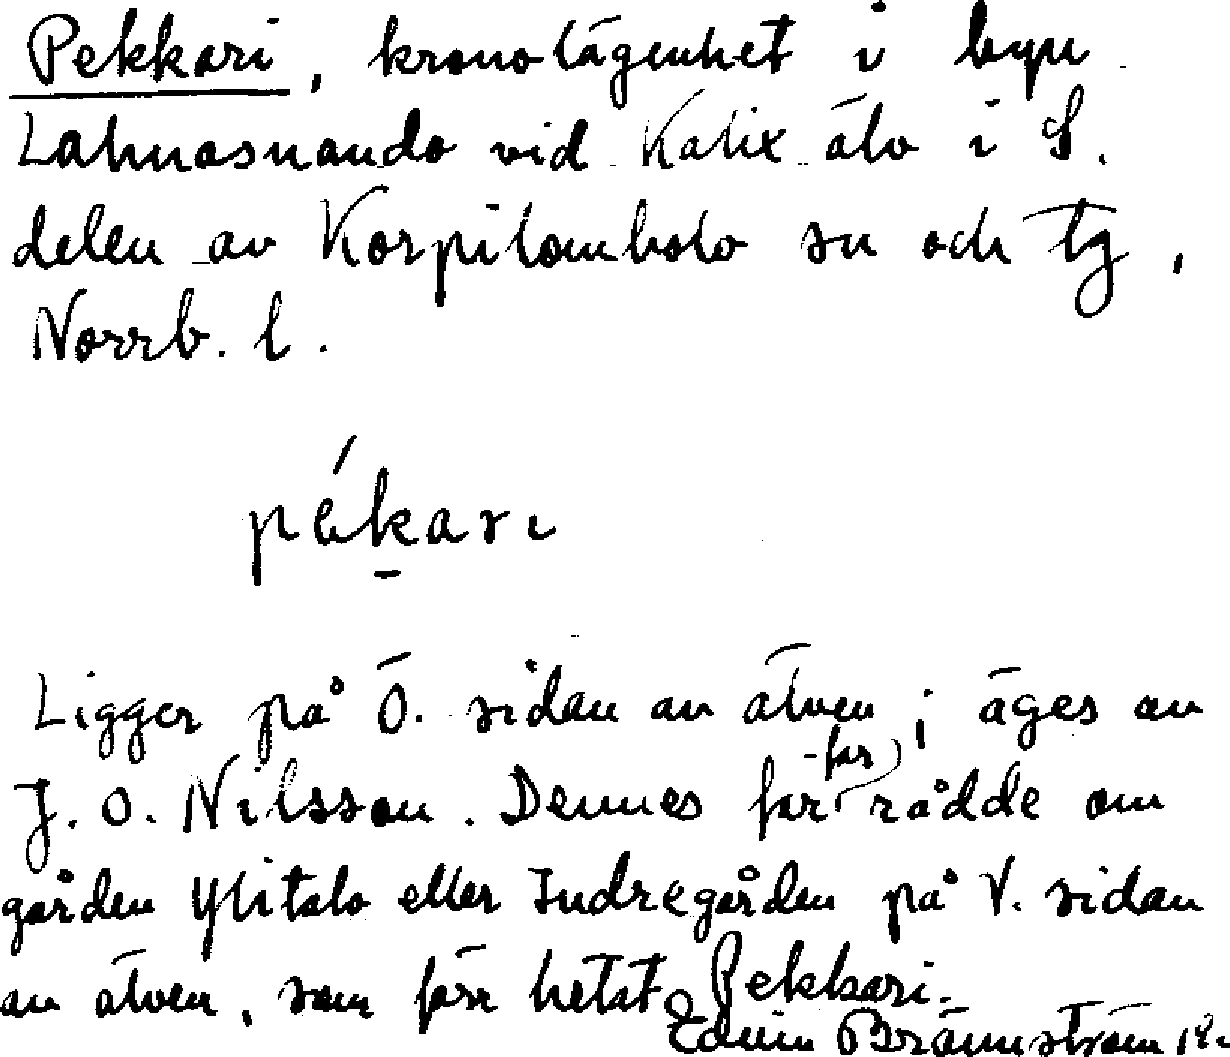 Pekkari, kronolägenhet i byn
Lahnasuando vid Kalix älv i S.
delen av Korpilombolo sn och tg,
Norrb. l.
pékari
Ligger på Ö. sidan av älven; äges av
J. O. Nilsson. Dennes far -far rådde om
gården Ylitalo eller Indregården på V. sidan
av älven, som förr hetat Pekkari.
Edvin Brännström